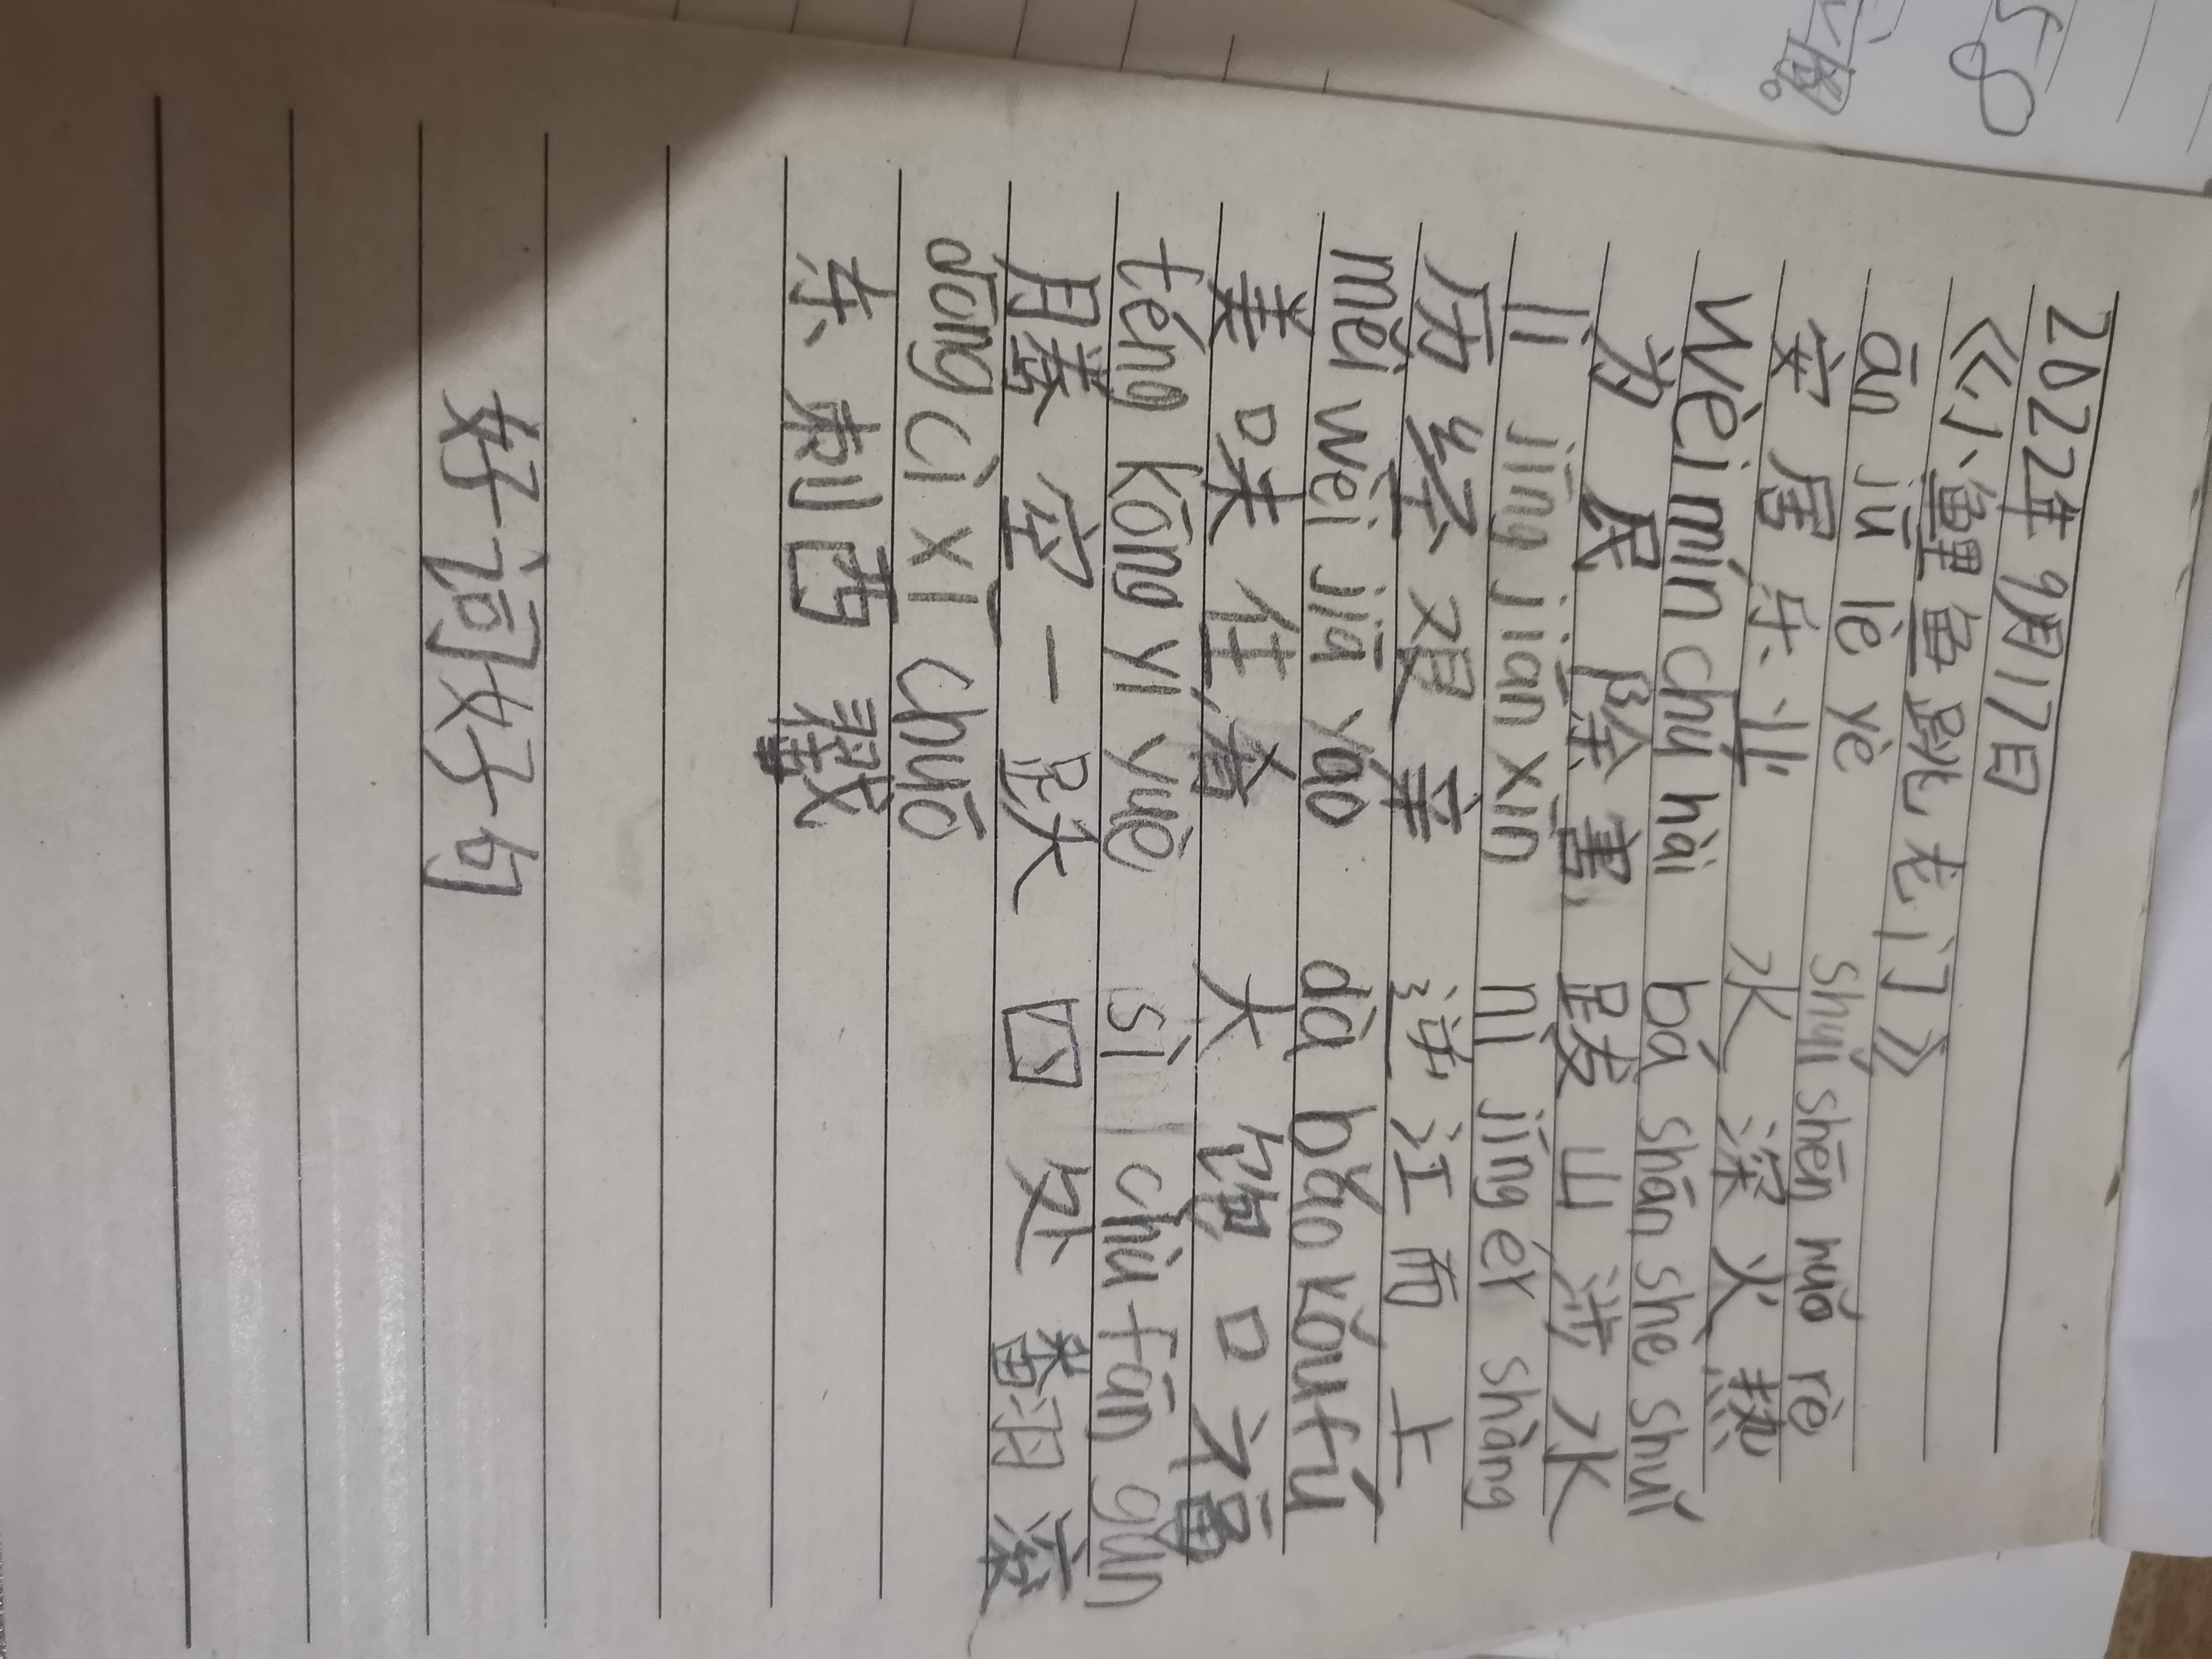 2022年9月17日
《小鲤鱼跳龙门》
ān jū lè yè shuǐ shēn huǒ rè
安居乐业 水深火热
wèi mín chú hài bá shān shè shuǐ
为民除害 跋山涉水
lì jīng jiān xīn nì jīng ér shàng
历经艰辛 逆江而上
měi wèi jiā yáo dà bǎo kǒu fú
美味佳肴 大饱口福
téng kōng yí yuè sì chù fān gǔn
腾空一跃 四处翻滚
dōng cì xī chuō
东刺西戳
好词好句
58